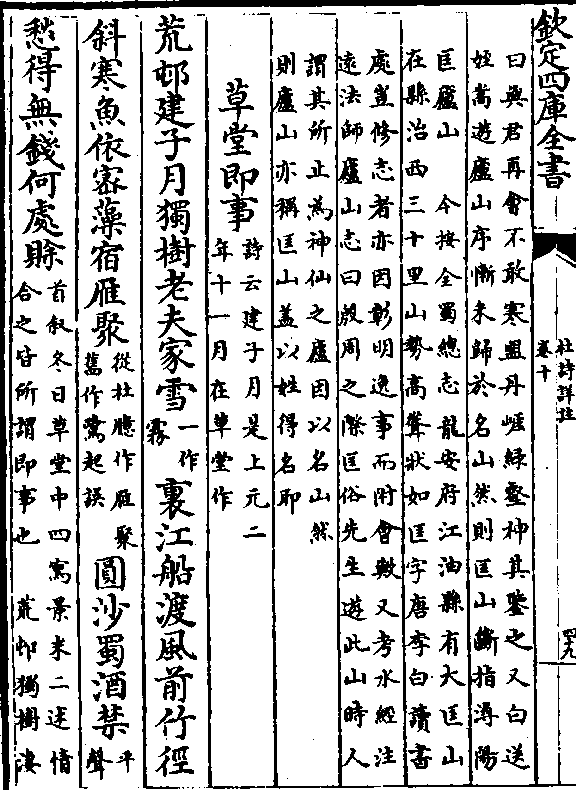 欽定四庫全書
杜詩詳註
卷十
四九
曰與君再會不敢寒盟丹崖綠壑神其鑒之又白送
姪嵩遊廬山序慚未歸於名山然則匡山斷指潯陽
匡廬山 今按全蜀總志龍安府江油縣有大匡山
在縣治西三十里山勢高聳狀如匡字唐李白讀書
處豈修志者亦因彰明逸事而附會歟又考水經注
遠法師廬山志曰殷周之際匡俗先生遊此山時人
謂其所止為神仙之廬因以名山然
則廬山亦稱匡山蓋以姓得名耶
草堂即事 詩云建子月是上元二年十一月在草堂作
荒邨建子月獨樹老夫家雪一作霧裏江船渡風前竹徑
斜寒魚依密藻宿雁聚從杜臆作雁聚舊作鷺起誤圓沙蜀酒禁平聲
愁得無錢何處賒 首叙冬日草堂中四寫景末二述情合之皆所謂即事也 荒邨獨樹淒